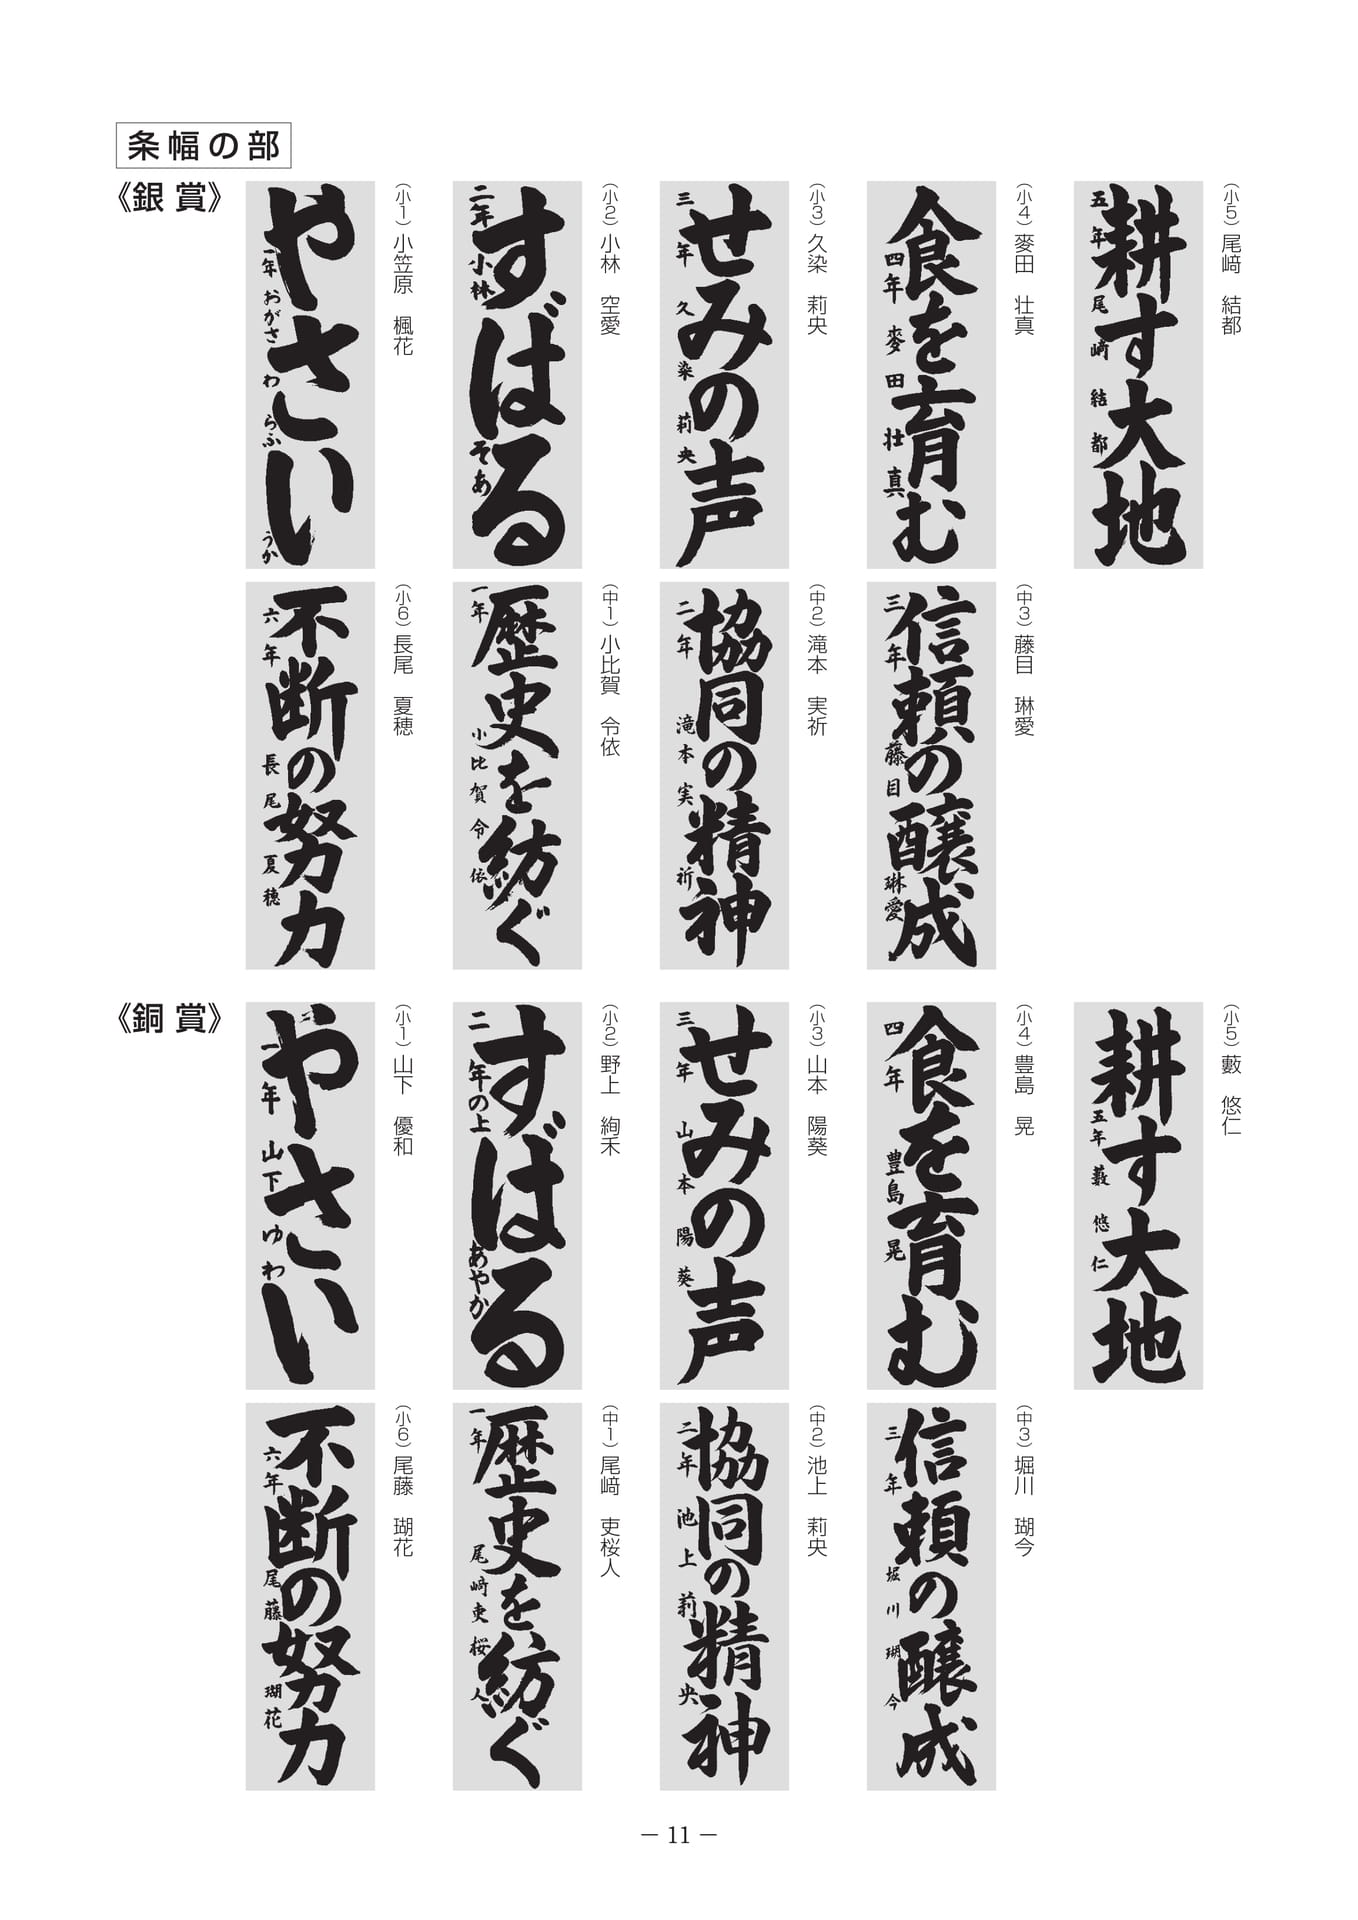 条幅の部
《銀賞》
やさい
一年 おがさわらふうか
（小1）小笠原 楓花
すばる
二年 小林そあ
（小2）小林 空愛
せみの声
三年 久染莉央
（小3）久染 莉央
食を育む
四年 麥田壮真
（小4）麥田 壮真
耕す大地
五年 尾﨑結都
（小5）尾﨑 結都
不断の努力
六年 長尾夏穂
（小6）長尾 夏穂
歴史を紡ぐ
一年 小比賀令依
（中1）小比賀 令依
協同の精神
二年 滝本実祈
（中2）滝本 実祈
信頼の醸成
三年 藤目琳愛
（中3）藤目 琳愛
《銅賞》
やさい
一年 山下ゆわ
（小1）山下 優和
すばる
二年 の上あやか
（小2）野上 絢禾
せみの声
三年 山本陽葵
（小3）山本 陽葵
食を育む
四年 豊島晃
（小4）豊島 晃
耕す大地
五年 藪悠仁
（小5）藪 悠仁
不断の努力
六年 尾藤瑚花
（小6）尾藤 瑚花
歴史を紡ぐ
一年 尾﨑吏桜人
（中1）尾﨑 吏桜人
協同の精神
二年 池上莉央
（中2）池上 莉央
信頼の醸成
三年 堀川瑚今
（中3）堀川 瑚今
― 11 ―